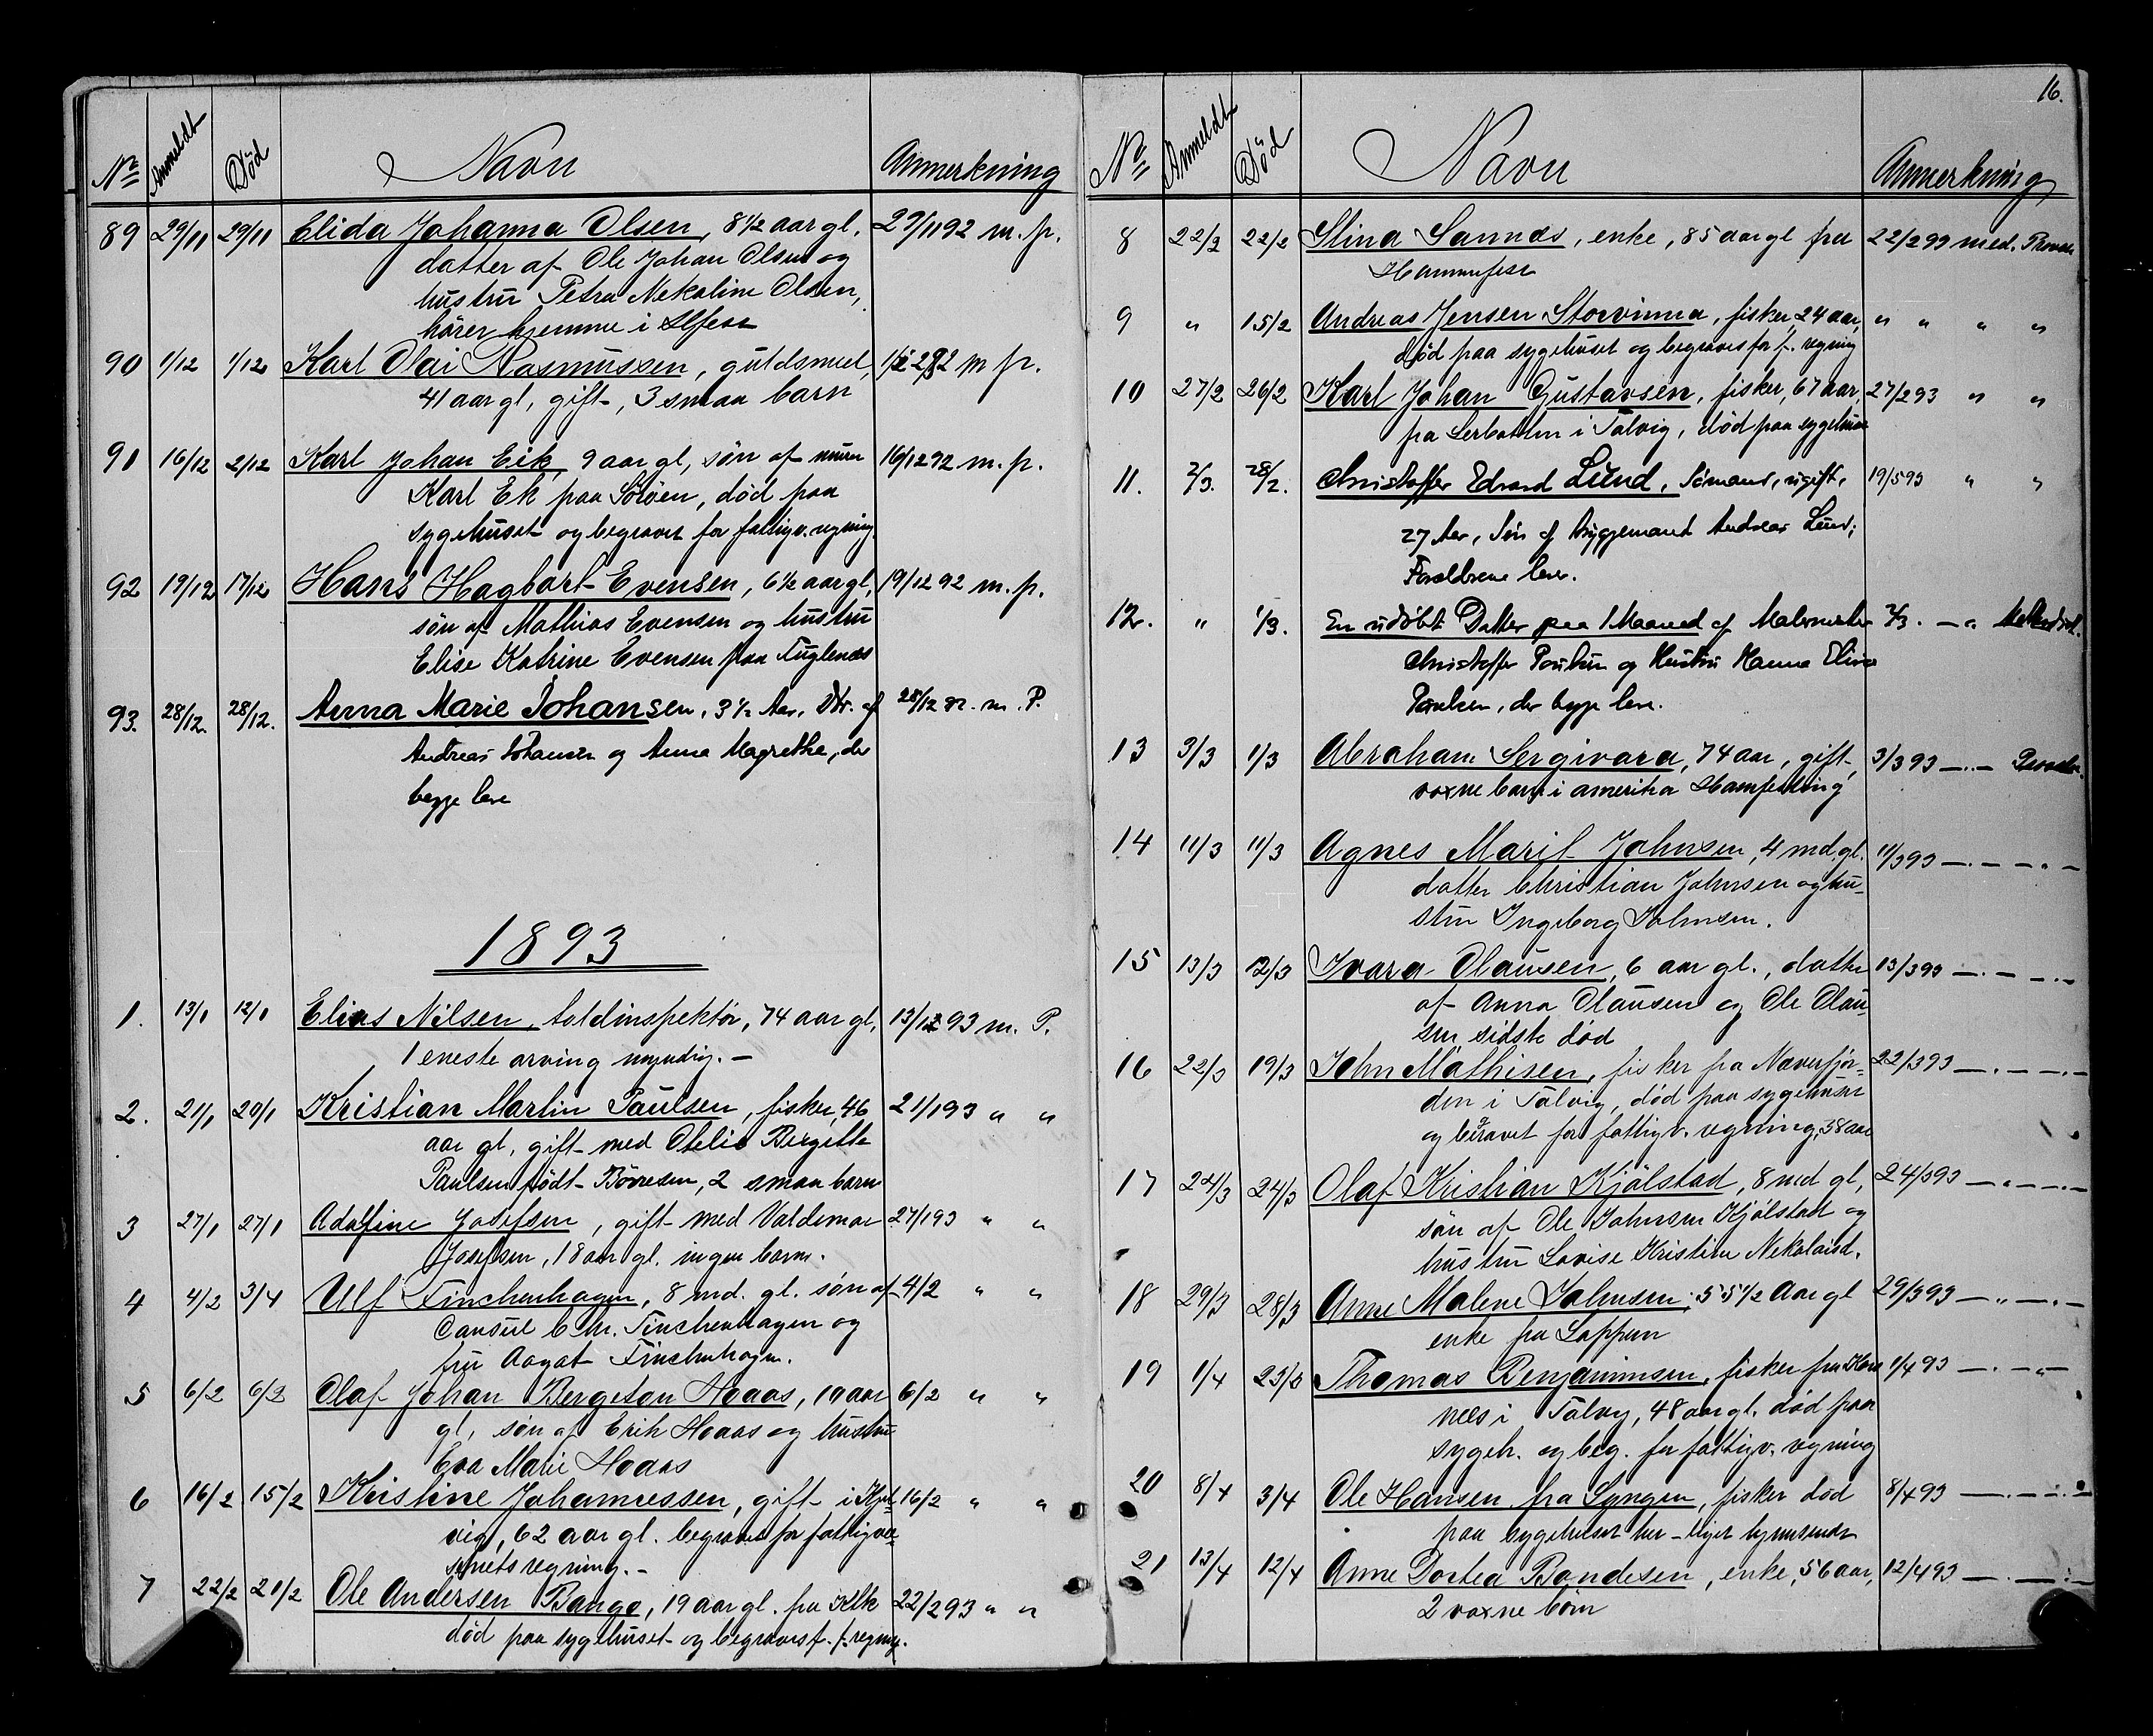 Nr. Anmeldt Död Navn Anmerkning
89 29/11 29/11 Elida Johanna Olsen, 8 1/2 aar gl. 29/11 92 m. p.
datter af Ole Johan Olsen og
hustru Petra Nekoline Olsen,
hörer hjemme i Hfest
90 1/12 1/12 Karl Olai Rasmussen, guldsmed, 1/12 92 m p.
41 aar gl, gift, 3 smaa barn
91 16/12 2/12 Karl Johan Eik, 9 aar gl, sön af murer 16/12 92 m. p.
Karl Ek paa Söröen, död paa
sygehuset og begravet for fattigv. regning.
92 19/12 17/12 Hans Hagbart Evensen, 6 1/2 aar gl, 19/12 92 m. p.
sön af Mathias Evensen og hustru
Elise Katrine Evensen paa Fuglenæs
93. 28/12. 28/12. Anna Marie Johansen, 3 1/2 Aar, Dtr. af 28/12 92. m. P.
Andreas Johansen og Anna Magrethe, der
begge leve
1893
1. 13/1 12/1 Elias Nilsen, toldinspektör, 74 aar gl, 13/1 93 m. P.
1 eneste arving myndig. —
2. 21/1 20/1 Kristian Martin Paulsen, fisker, 46 21/1 93 " "
aar gl, gift med Otelie Birgitte
Paulsen födt Börresen, 2 smaa barn
3 27/1 27/1 Adolfine Josefsen, gift med Valdemar 27/1 93 " "
Josefsen, 18 aar gl. ingen barn.
4 4/2 3/4 Ulf Finchenhagen, 8 md. gl. sön af 4/2 " "
Consul Chr. Finchenhagen og
fru Aagot Finchenhagen.
5 6/2 6/2 Olaf Johan Bergeton Hoaas, 10 aar 6/2 " "
gl, sön af Erik Hoaas og hustru
Eva Marie Hoaas
6 16/2 15/2 Kristine Johannessen, gift i Kjel- 16/2 " "
vig, 62 aar gl. begravet for fattigvæ-
senets regning. –
7 22/2 20/2 Ole Andersen Bange, 19 aar gl. fra 22/2 93 " "
död paa sygehuset og begraves f. f. regning.
16.
Nr. Anmeldt Död Navn Anmerkning
8 22/2 22/2 Stina Sannæs, enke, 85 aar gl fra 22/2 93 med.
Hammerfest
9 " 15/2 Andreas Jensen Storvinna, fisker, 24 aar, " " " "
död paa sygehuset og begraves for f. regning
10 27/2 26/2 Karl Johan Gustavsen, fisker, 67 aar, 27/2 93 " "
fra i Talvig, död paa sygehuset
11. 2/3. 28/2. Christoffer Edvard Lund, Sömand, ugift, 19/5 93 " "
27 Aar, Sön af Bryggemand Andreas Lund;
Forældrene leve.
12. " 1/3. En udöbt Datter paa 1 Maaned af Malermester 2/3. – " Methodist.
Christoffer Poulsen og Hustru Hanna Elina
Poulsen, der begge leve.
13 3/3 1/3 Abraham Sergivara, 74 aar, gift, 3/3 93 —.—
voxne barn i amerika
14 11/3 11/3 Agnes Marit Johnsen, 4 md gl. 11/3 93 —.— —.—
datter Christian Johnsen og hu-
stru Ingeborg Johnsen.
15 13/3 12/3 Ivara Olausen, 6 aar gl., datter 13/3 93 —.— —.—
af Anna Olausen og Ole Olau-
sen sidste död
16 22/3 19/3 John Mathisen, fisker fra Næverfjor- 22/3 93 —.— —.—
den i Talvig, död paa sygehuset
og begravet for fattigv. regning, 38 aar
17 24/3 24/3 Olaf Kristian Kjölstad, 8 md gl, 24/3 93 —.— —.—
sön af Ole Johnsen Kjölstad og
hustru Lovise Kristine Nekolaisd.
18 29/3 28/3 Anne Malene Johnsen, 55 1/2 Aar gl 29/3 93 —"— —.—
enke fra Loppen
19 1/4 23/3 Thomas Benjaminsen, fisker fra Kors 1/4 93 —.— —"—
næs i Talvig, 48 aar gl. död paa
sygeh. og beg. for fattigv. regning
20 8/4 3/4 Ole Hansen fra Lyngen, fisker död 8/4 93 —.— —.—
paa sygehuset her – liget hjemsendt
21 13/4 12/4 Anne Dortea Bendiksen, enke, 56 aar, 12/4 93 —.— —.—
2 voxne börn